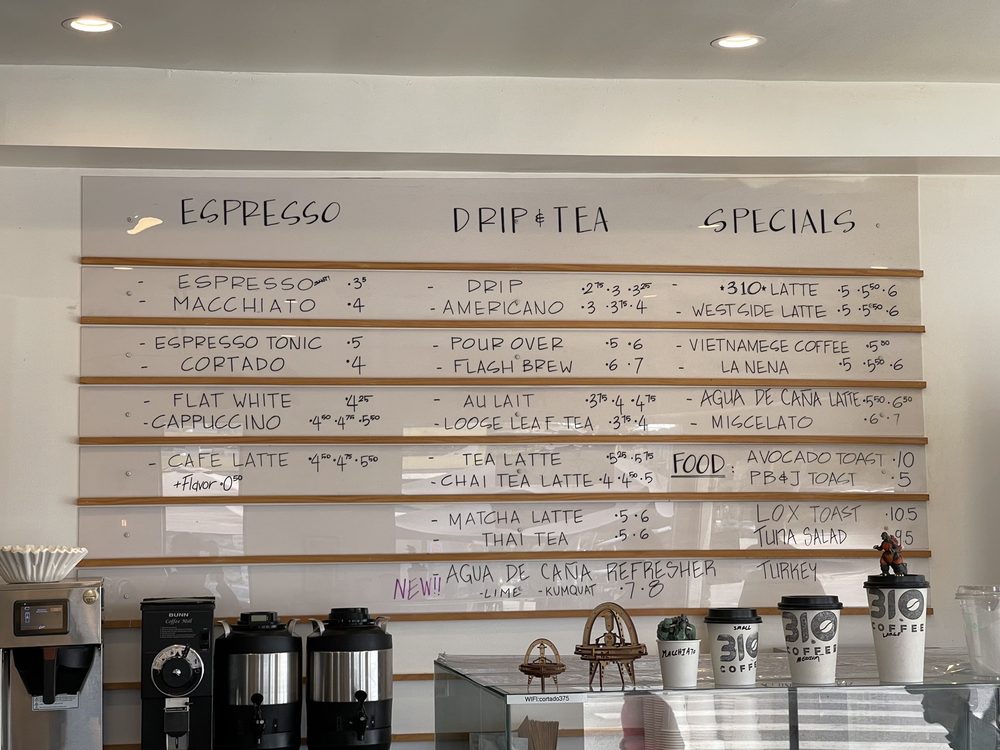 ESPRESSO
- ESPRESSO .3⁵
- MACCHIATO .4
- ESPRESSO TONIC .5
- CORTADO .4
- FLAT WHITE .4²⁵
- CAPPUCCINO .4⁵⁰.4⁷⁵.5⁵⁰
- CAFE LATTE .4⁵⁰.4⁷⁵.5⁵⁰
+Flavor .0⁵⁰
DRIP & TEA
- DRIP .2⁷⁵.3.3²⁵
- AMERICANO .3.3⁷⁵.4
- POUR OVER .5.6
- FLASH BREW .6.7
- AU LAIT .3⁷⁵.4.4⁷⁵
- LOOSE LEAF TEA .3⁷⁵.4
- TEA LATTE .5²⁵.5⁷⁵
- CHAI TEA LATTE .4.4⁵⁰.5
- MATCHA LATTE .5.6
- THAI TEA .5.6
NEW!! AGUA DE CAÑA REFRESHER
-LIME -KUMQUAT .7.8
SPECIALS
- *310* LATTE .5.5⁵⁰.6
- WESTSIDE LATTE .5.5⁵⁰.6
- VIETNAMESE COFFEE .5⁵⁰
- LA NENA .5.5⁵⁰.6
- AGUA DE CAÑA LATTE.5⁵⁰.6⁵⁰
- MISCELATO .6.7
FOOD: AVOCADO TOAST .10
PB&J TOAST .5
LOX TOAST .10.5
TUNA SALAD
TURKEY
BUNN
Coffee Mill
WIFI:cortado375
MACCHIATO
SMALL
310
COFFEE
310
COFFEE
MEDIUM
310
COFFEE
LARGE